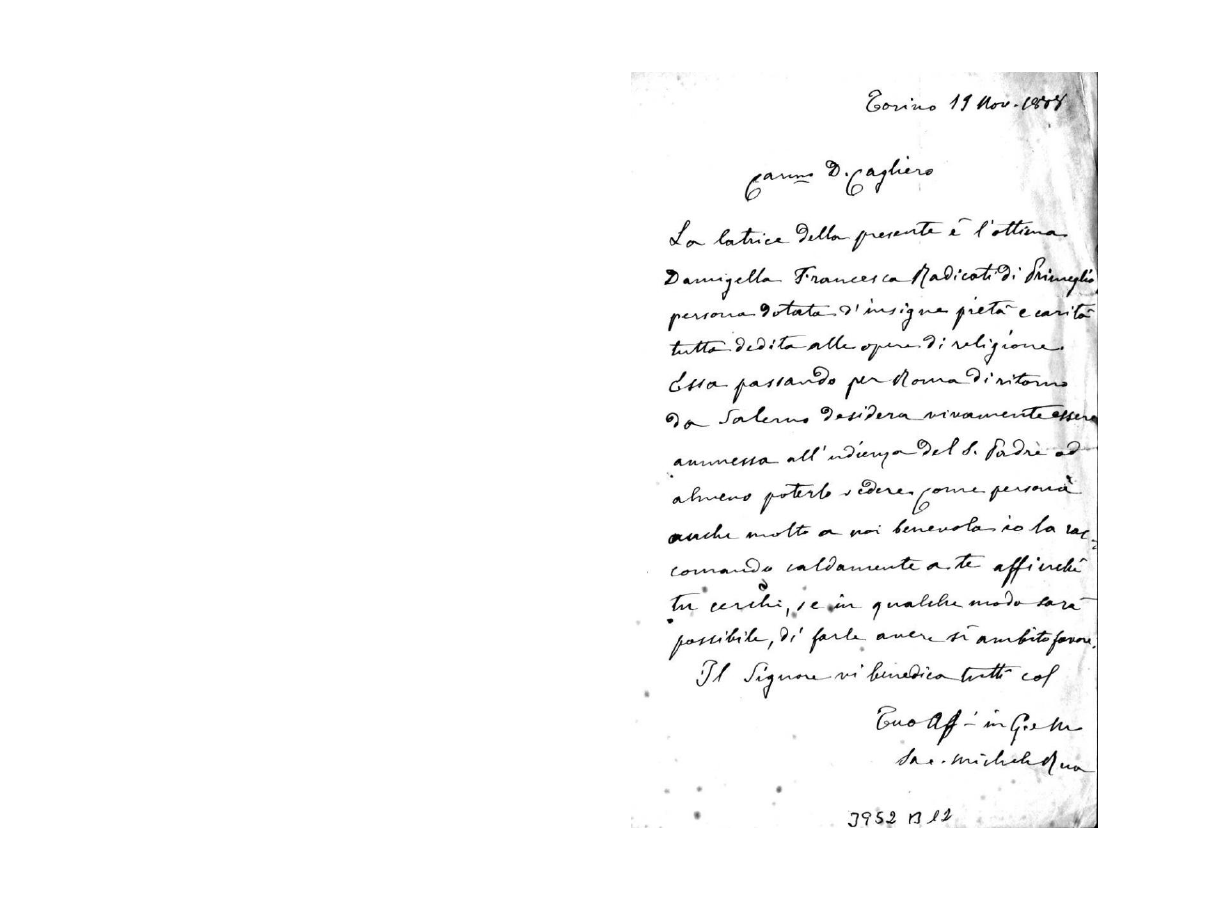 Torino 19 Nov. 1888
Carmo D. Cagliero
La latrice della presente è l'ottima
Damigella Francesca Radicati di Primeglio
persona dotata d'insigne pietà e carità
tutta dedita alle opere di religione.
Essa passando per Roma di ritorno
da Salerno desidera vivamente essere
ammessa all'udienza del S. Padre od
almeno poterlo vedere. Come persona
anche molto a noi benevola io la rac=
comando caldamente a te affinchè
tu cerchi, se in qualche modo sarà
possibile, di farle avere sì ambito favore.
Il Signore vi benedica tutti col
Tuo Aff. in G. e M.
Sac. Michele Rua
3952 B 12